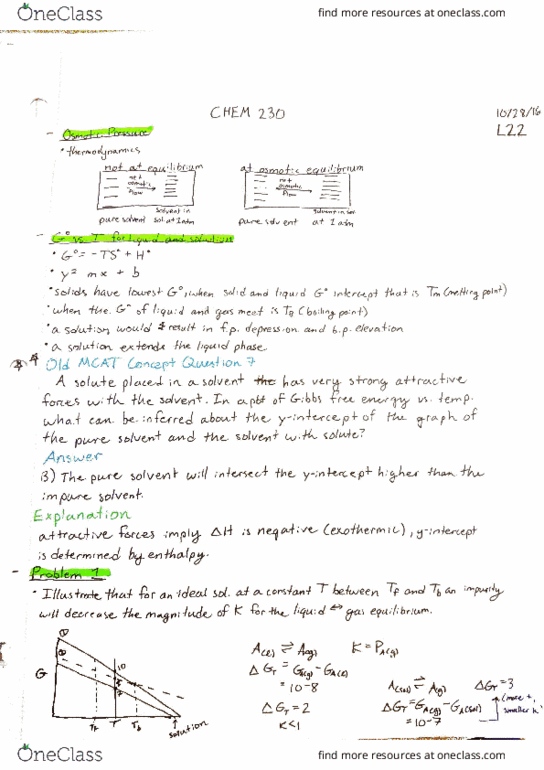 OneClass
find more resources at oneclass.com
CHEM 230
10/28/16
L22
- Osmotic Pressure
• thermodynamics
not at equilibrium
at osmotic equilibrium
net
osmotic
flow
net
osmotic
flow
pure solvent
solvent in
sol. at 1 atm
pure solvent
solvent in sol.
at 1 atm
- G° vs T for liquid and solution
• G° = -TS° + H°
• y = mx + b
• solids have lowest G°, when solid and liquid G° intercept that is Tm (melting point)
• when the G° of liquid and gas meet is TB (boiling point)
• a solution would result in f.p. depression and b.p. elevation
• a solution extends the liquid phase.
Old MCAT Concept Question 7
A solute placed in a solvent has very strong attractive
forces with the solvent. In a plot of Gibbs free energy vs. temp.
what can be inferred about the y-intercept of the graph of
the pure solvent and the solvent with solute?
Answer
B) The pure solvent will intersect the y-intercept higher than the
impure solvent.
Explanation
attractive forces imply ΔH is negative (exothermic), y-intercept
is determined by enthalpy.
- Problem 1
• Illustrate that for an ideal sol. at a constant T between Tf and Tb an impurity
will decrease the magnitude of K for the liquid ↔ gas equilibrium.
G
10
Tf
T
Tb
solution
A(l) ⇌ A(g) K = PA(g)
ΔGT = GA(g) - GA(l)
= 10-8
ΔGT = 2
K<1
A(sol) ⇌ A(g) ΔGT = 3
ΔGT = GA(g) - GA(sol)
= 10-7
(more +,
smaller K)
OneClass
find more resources at oneclass.com